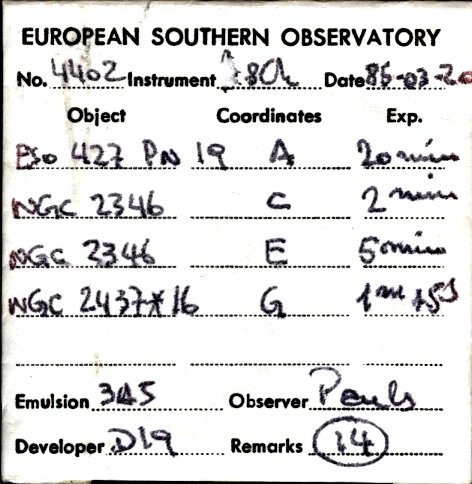 EUROPEAN SOUTHERN OBSERVATORY
No. 4402 Instrument Date 86-03-20
Object Coordinates Exp.
ESO 427 PN 19 A 20 min
NGC 2346 C 2 min
NGC 2346 E 5 min
NGC 2437*16 G 1m 15s
Emulsion 3A5 Observer
Developer D19 Remarks 14